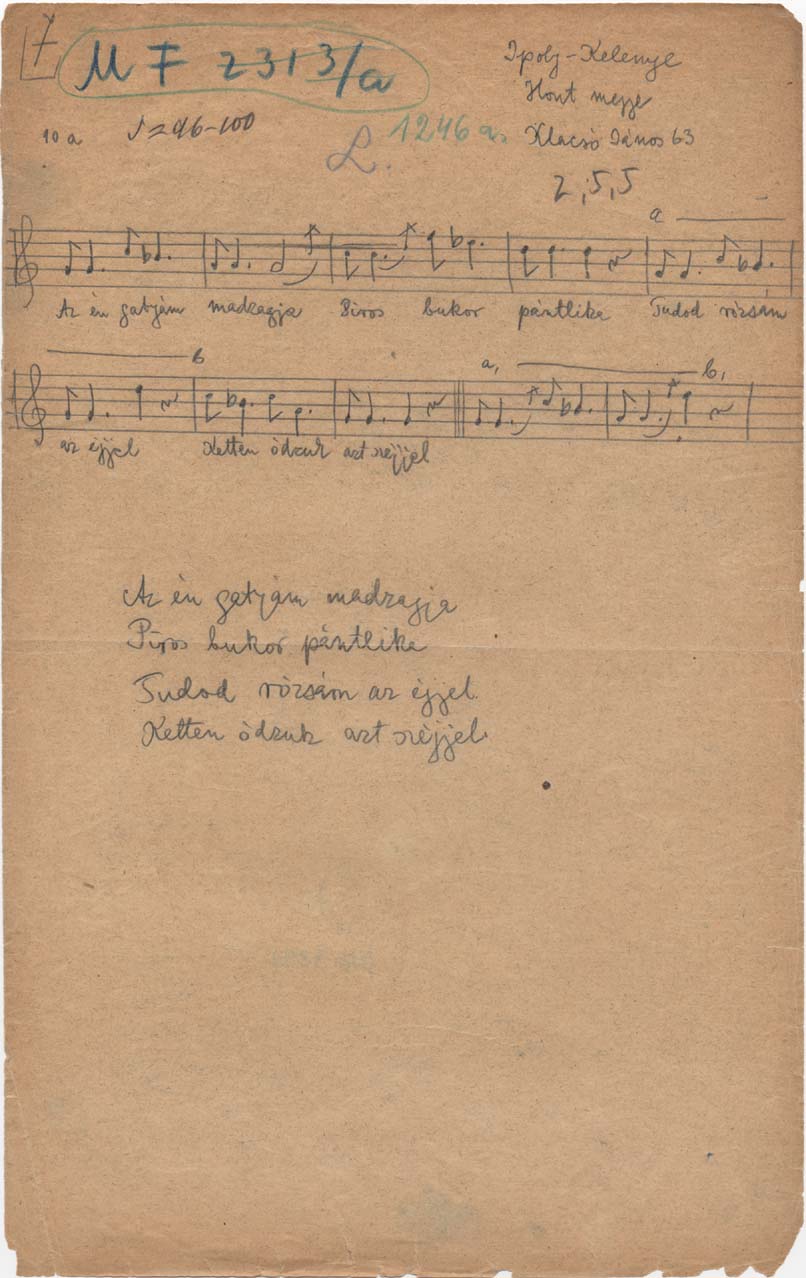 7
M F 2313/a
Ipoly-Kelenye
Hont megye
10 a ♪=96-100 L. 1246 a. Klacsó János 63
2,5,5
a
Az én gatyám madzagja Piros bukor pántlika Tudod rózsám
b a, b,
az éjjel Ketten ódzuk azt széjjel
Az én gatyám madzagja
Piros bukor pántlika
Tudod rózsám az éjjel
Ketten ódzuk azt széjjel.